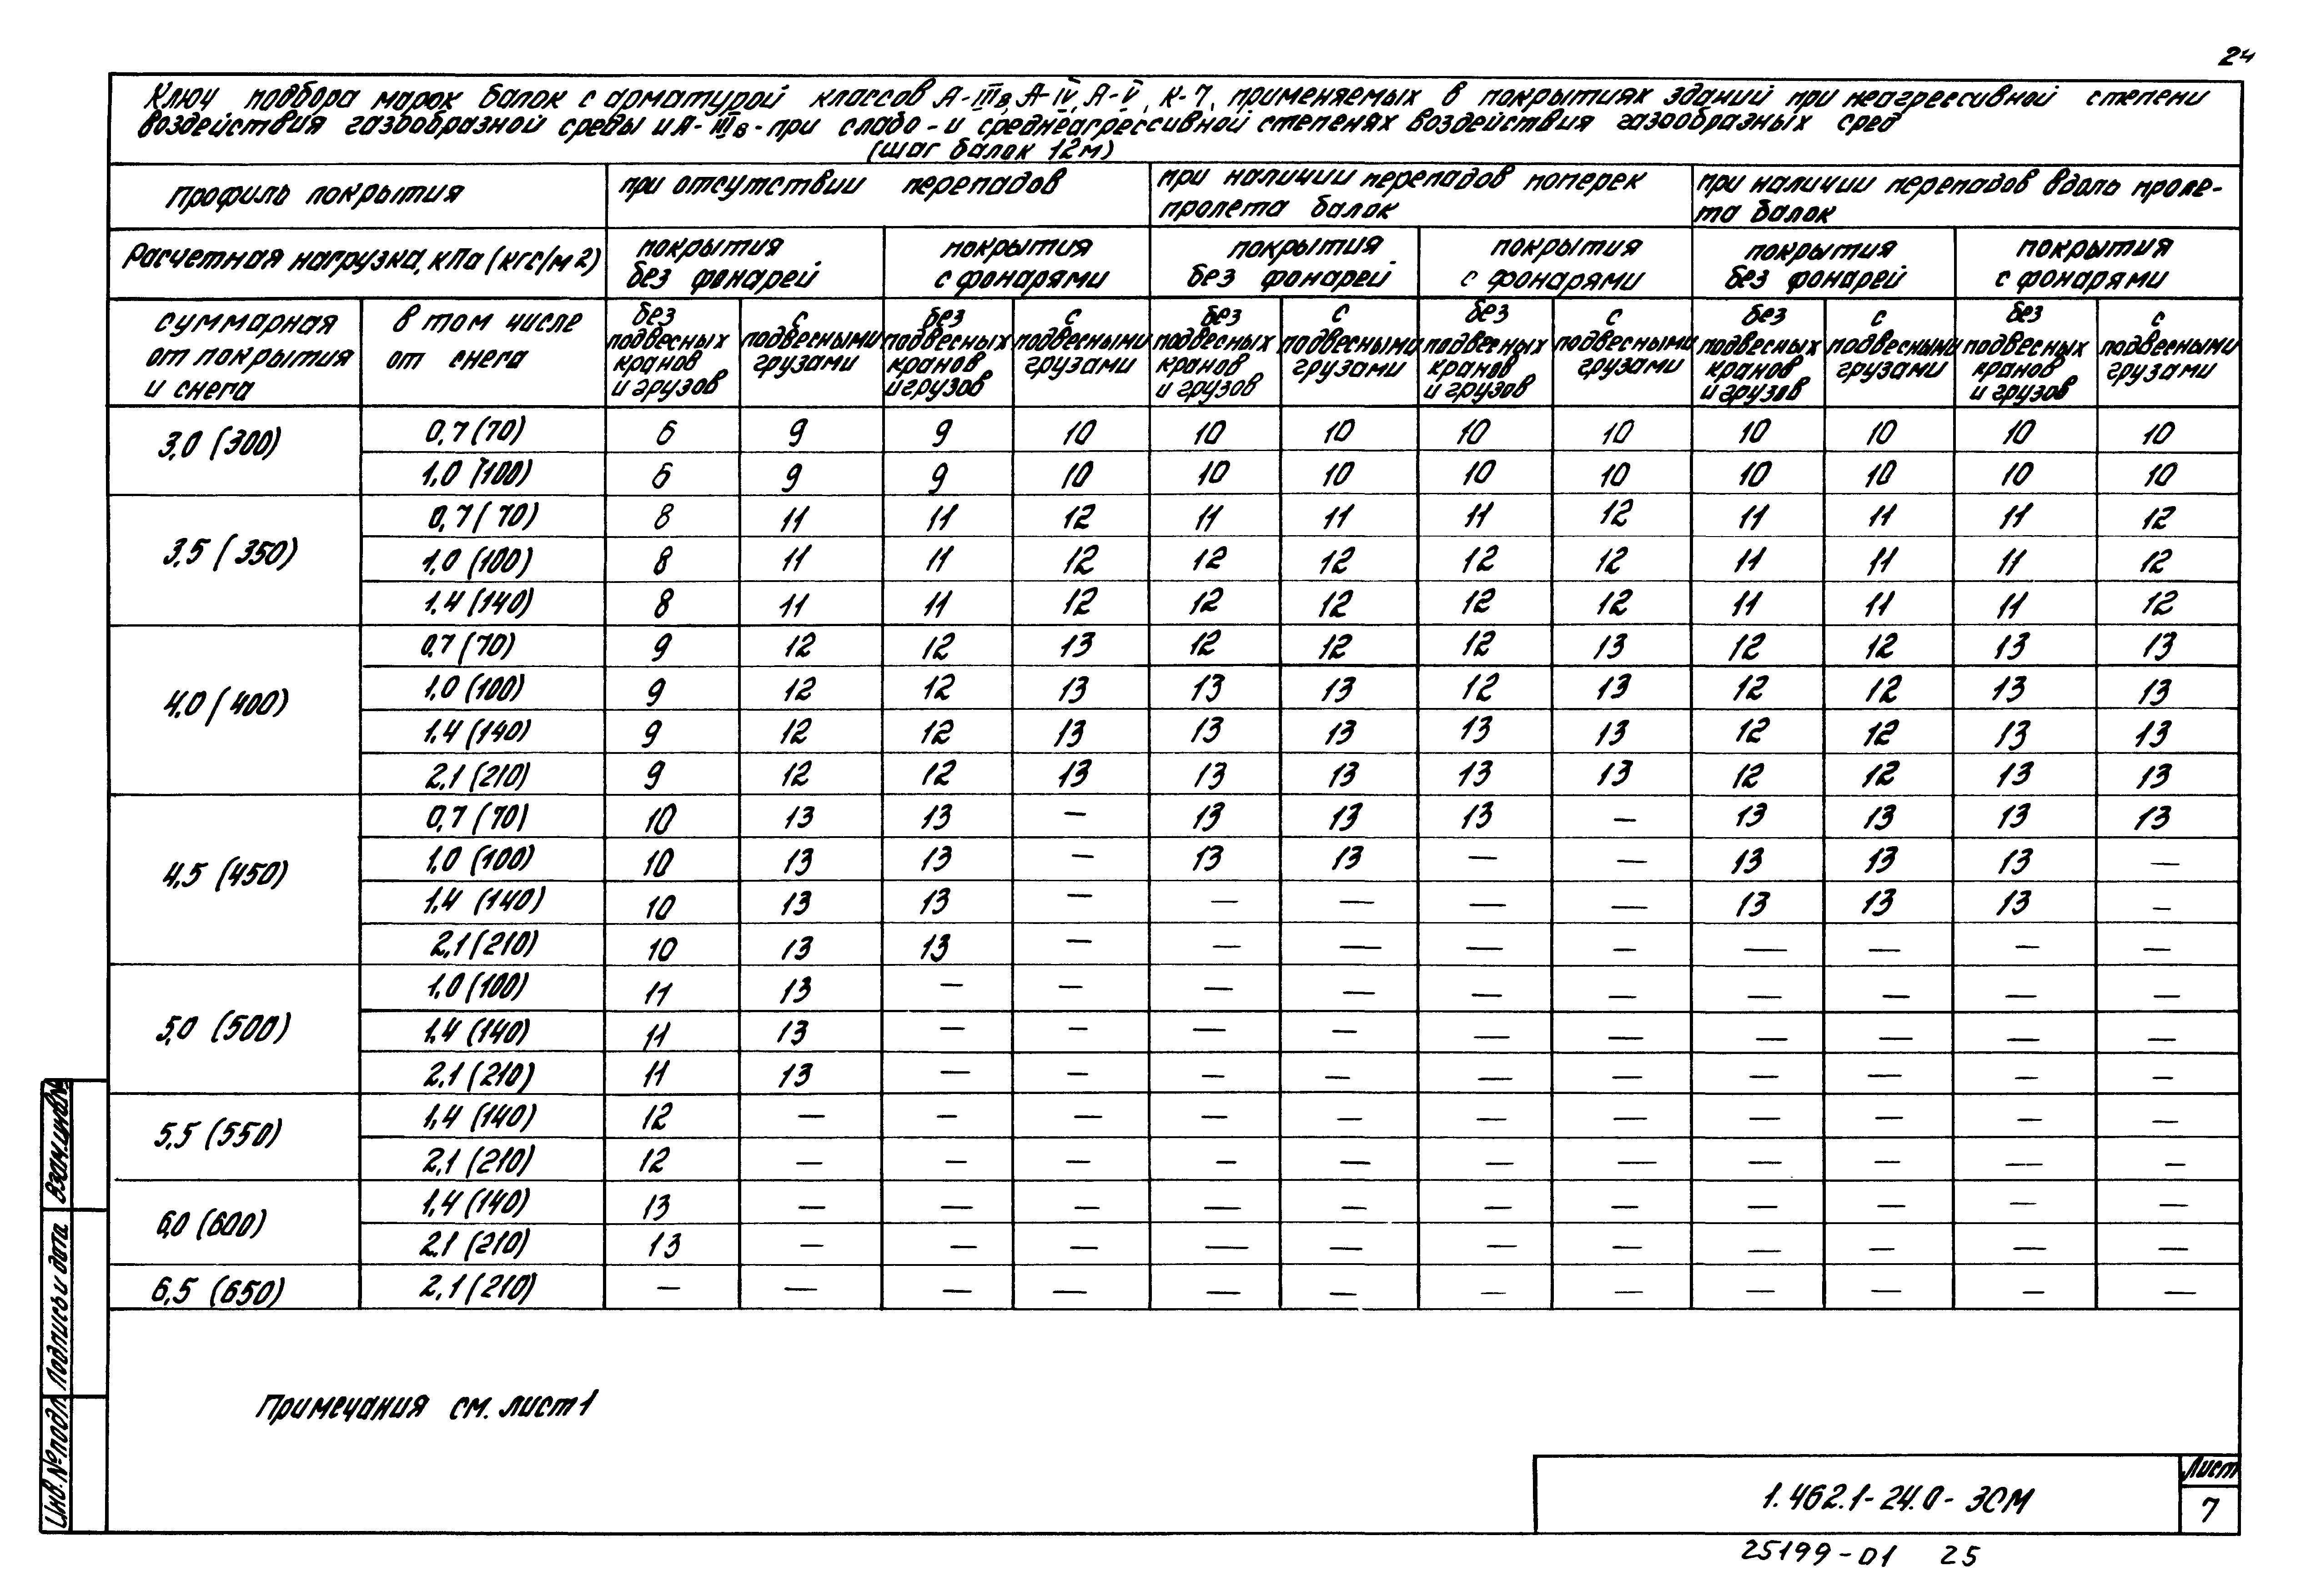 24
Ключ подбора марок балок с арматурой классов А-IIIв, А-IV, А-V, К-7, применяемых в покрытиях зданий при неагрессивной степени
воздействия газообразной среды и А-IIIв-при слабо-и среднеагрессивной степенях воздействия газообразных сред
(шаг балок 12м)
Профиль покрытия | при отсутствии перепадов | при наличии перепадов поперек пролета балок | при наличии перепадов вдоль проле-та балок
Расчетная нагрузка, кПа (кгс/м2) | покрытия без фонарей | покрытия с фонарями | покрытия без фонарей | покрытия с фонарями | покрытия без фонарей | покрытия с фонарями
суммарная от покрытия и снега | в том числе от снега | без подвесных кранов и грузов | с подвесными грузами | без подвесных кранов и грузов | с подвесными грузами | без подвесных кранов и грузов | с подвесными грузами | без подвесных кранов и грузов | с подвесными грузами | без подвесных кранов и грузов | с подвесными грузами | без подвесных кранов и грузов | с подвесными грузами
3,0 (300) | 0,7 (70) | 6 | 9 | 9 | 10 | 10 | 10 | 10 | 10 | 10 | 10 | 10 | 10
1,0 (100) | 6 | 9 | 9 | 10 | 10 | 10 | 10 | 10 | 10 | 10 | 10 | 10
3,5 (350) | 0,7 (70) | 8 | 11 | 11 | 12 | 11 | 11 | 11 | 12 | 11 | 11 | 11 | 12
1,0 (100) | 8 | 11 | 11 | 12 | 12 | 12 | 12 | 12 | 11 | 11 | 11 | 12
1,4 (140) | 8 | 11 | 11 | 12 | 12 | 12 | 12 | 12 | 11 | 11 | 11 | 12
4,0 (400) | 0,7 (70) | 9 | 12 | 12 | 13 | 12 | 12 | 12 | 13 | 12 | 12 | 13 | 13
1,0 (100) | 9 | 12 | 12 | 13 | 13 | 13 | 12 | 13 | 12 | 12 | 13 | 13
1,4 (140) | 9 | 12 | 12 | 13 | 13 | 13 | 13 | 13 | 12 | 12 | 13 | 13
2,1 (210) | 9 | 12 | 12 | 13 | 13 | 13 | 13 | 13 | 12 | 12 | 13 | 13
4,5 (450) | 0,7 (70) | 10 | 13 | 13 | — | 13 | 13 | 13 | — | 13 | 13 | 13 | 13
1,0 (100) | 10 | 13 | 13 | — | 13 | 13 | — | — | 13 | 13 | 13 | —
1,4 (140) | 10 | 13 | 13 | — | — | — | — | — | 13 | 13 | 13 | —
2,1 (210) | 10 | 13 | 13 | — | — | — | — | — | — | — | — | —
5,0 (500) | 1,0 (100) | 11 | 13 | — | — | — | — | — | — | — | — | — | —
1,4 (140) | 11 | 13 | — | — | — | — | — | — | — | — | — | —
2,1 (210) | 11 | 13 | — | — | — | — | — | — | — | — | — | —
5,5 (550) | 1,4 (140) | 12 | — | — | — | — | — | — | — | — | — | — | —
2,1 (210) | 12 | — | — | — | — | — | — | — | — | — | — | —
6,0 (600) | 1,4 (140) | 13 | — | — | — | — | — | — | — | — | — | — | —
2,1 (210) | 13 | — | — | — | — | — | — | — | — | — | — | —
6,5 (650) | 2,1 (210) | — | — | — | — | — | — | — | — | — | — | — | —
Примечания см. лист 1
Взам.инв№
Подпись и дата
Инв.№подл.
1.462.1-24.0-3СМ
Лист
7
25199-01 25